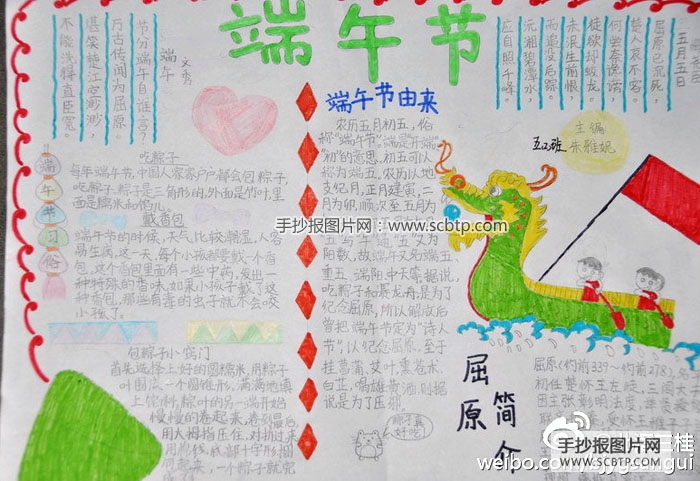 端午节
端午 文秀
节分端午自谁言?
万古传闻为屈原。
堪笑楚江空渺渺,
不能洗得直臣冤。
二五月五日
屈原已沉死,
楚人哀不容。
何尝奈谗谤,
徒欲却蛟龙。
未泯生前恨,
而追没后踪。
沅湘碧潭水,
应自照千峰。
主编
五(2)班
朱雅妮
端午节习俗
吃粽子
每年端午节,中国人家家户户都会包粽子,
吃粽子,粽子是三角形的,外面是竹叶,里
面是糯米和馅儿。
戴香包
端午节的时候,天气比较潮湿,人容
易生病,这一天,每个小孩都要戴一个香
包,这个香包里面有一些中药,发出一
种特殊的香味,如果小孩子戴了这
种香包,那些有毒的虫子就不会咬
小孩了。
包粽子小窍门
首先选择上好的圆糯米,用粽子
叶围成一个圆锥形,满满地填
上馅料,粽叶的另一端开始
慢慢的卷起来,卷到最后
用大拇指压住,对折过来
起来,一个粽子就完
端午节由来
农历五月初五,俗
称"端午节",端是"开端"
"初"的意思,初五可以
称为端五,农历以地
支纪月,正月建寅,二
月为卯,顺次至五月为
阳数,故端午又名端五、
重五、端阳、中天等,据说,
吃粽子和赛龙舟,是为了
纪念屈原,所以解放后
曾把端午节定为"诗人
节",以纪念屈原,至于
挂菖蒲、艾叶,薰苍术、
白芷,喝雄黄酒,则据
说是为了压邪。
粽子真
好吃
屈原简介
屈原(约前339~约前278),
初任楚怀王左徒,三闾大
因主张彰明法度,举贤授
手抄报图片网:www.scbtp.com
手抄报图片网
WWW.SCBTP.COM